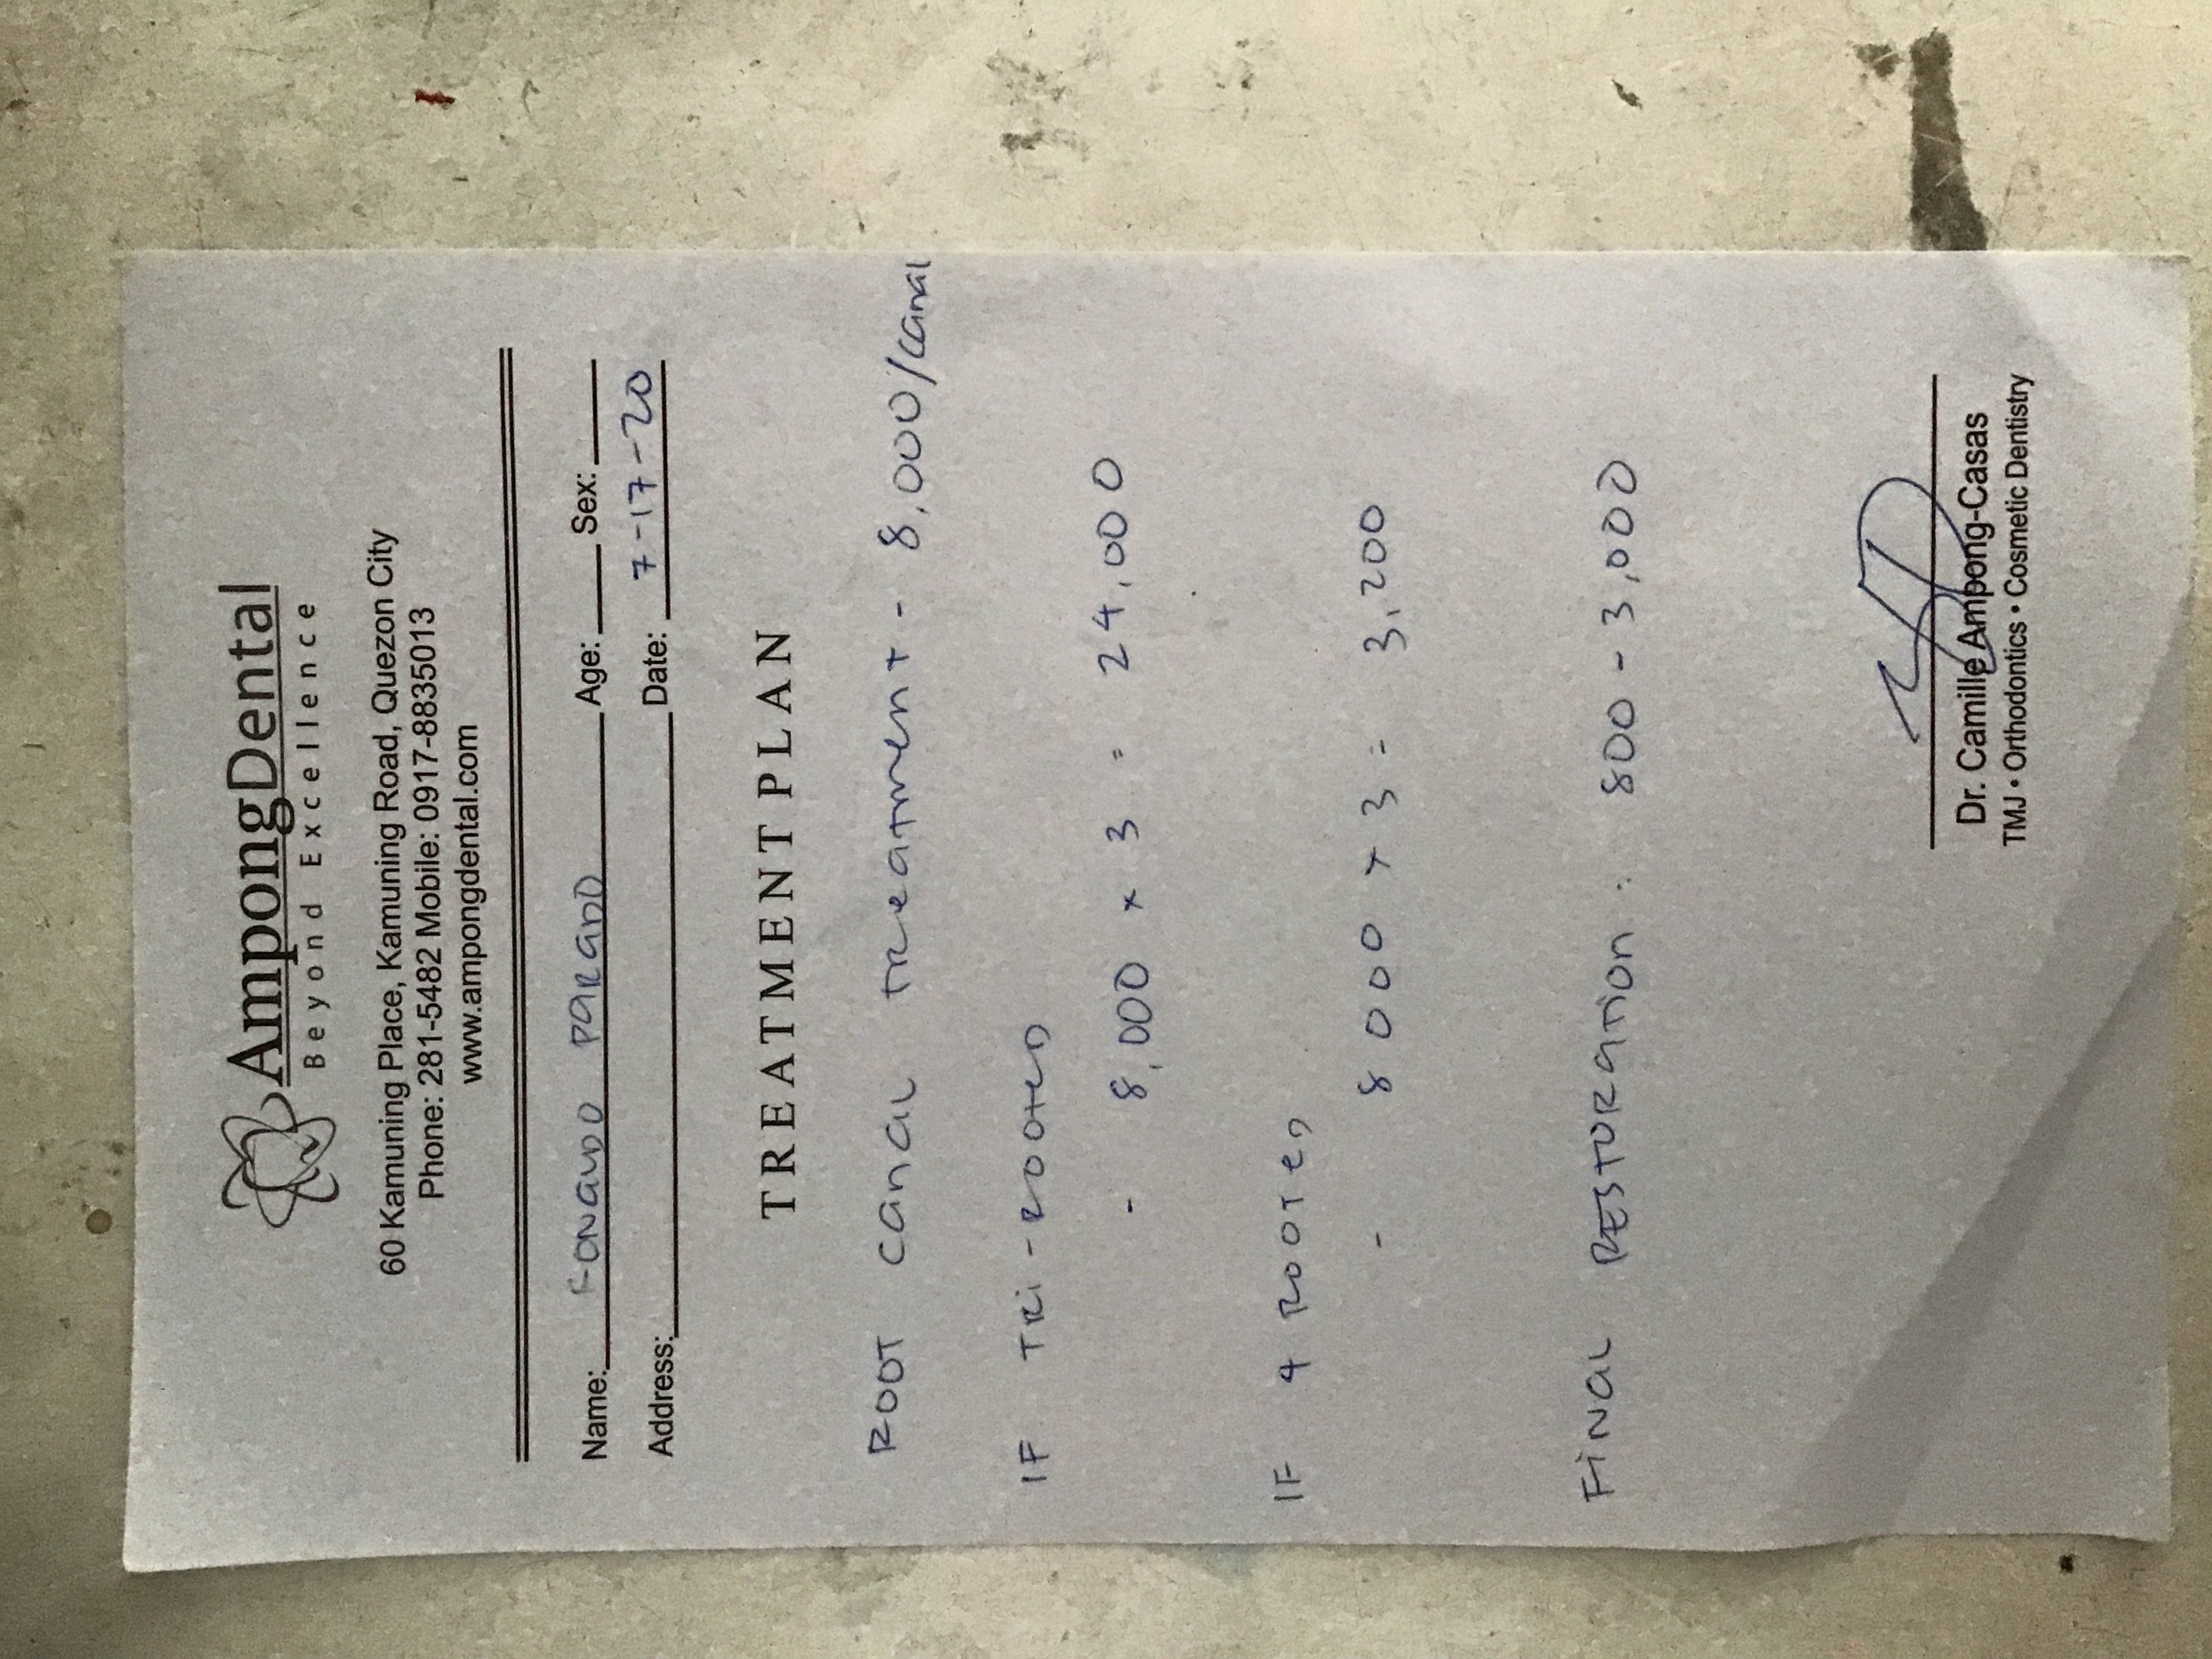 AmpongDental
Beyond Excellence
60 Kamuning Place, Kamuning Road, Quezon City
Phone: 281-5482 Mobile: 0917-8835013
www.ampongdental.com
Name: Age: Sex:
Address: Date: 7-17-20
TREATMENT PLAN
ROOT CANAL TREATMENT - 8,000/canal
IF TRI-ROOTED
- 8,000 x 3 = 24,000
IF 4 ROOTED
- 8000 x 3 = 3,200
FINAL RESTORATION: 800 - 3,000
Dr. Camille Ampong-Casas
TMJ • Orthodontics • Cosmetic Dentistry